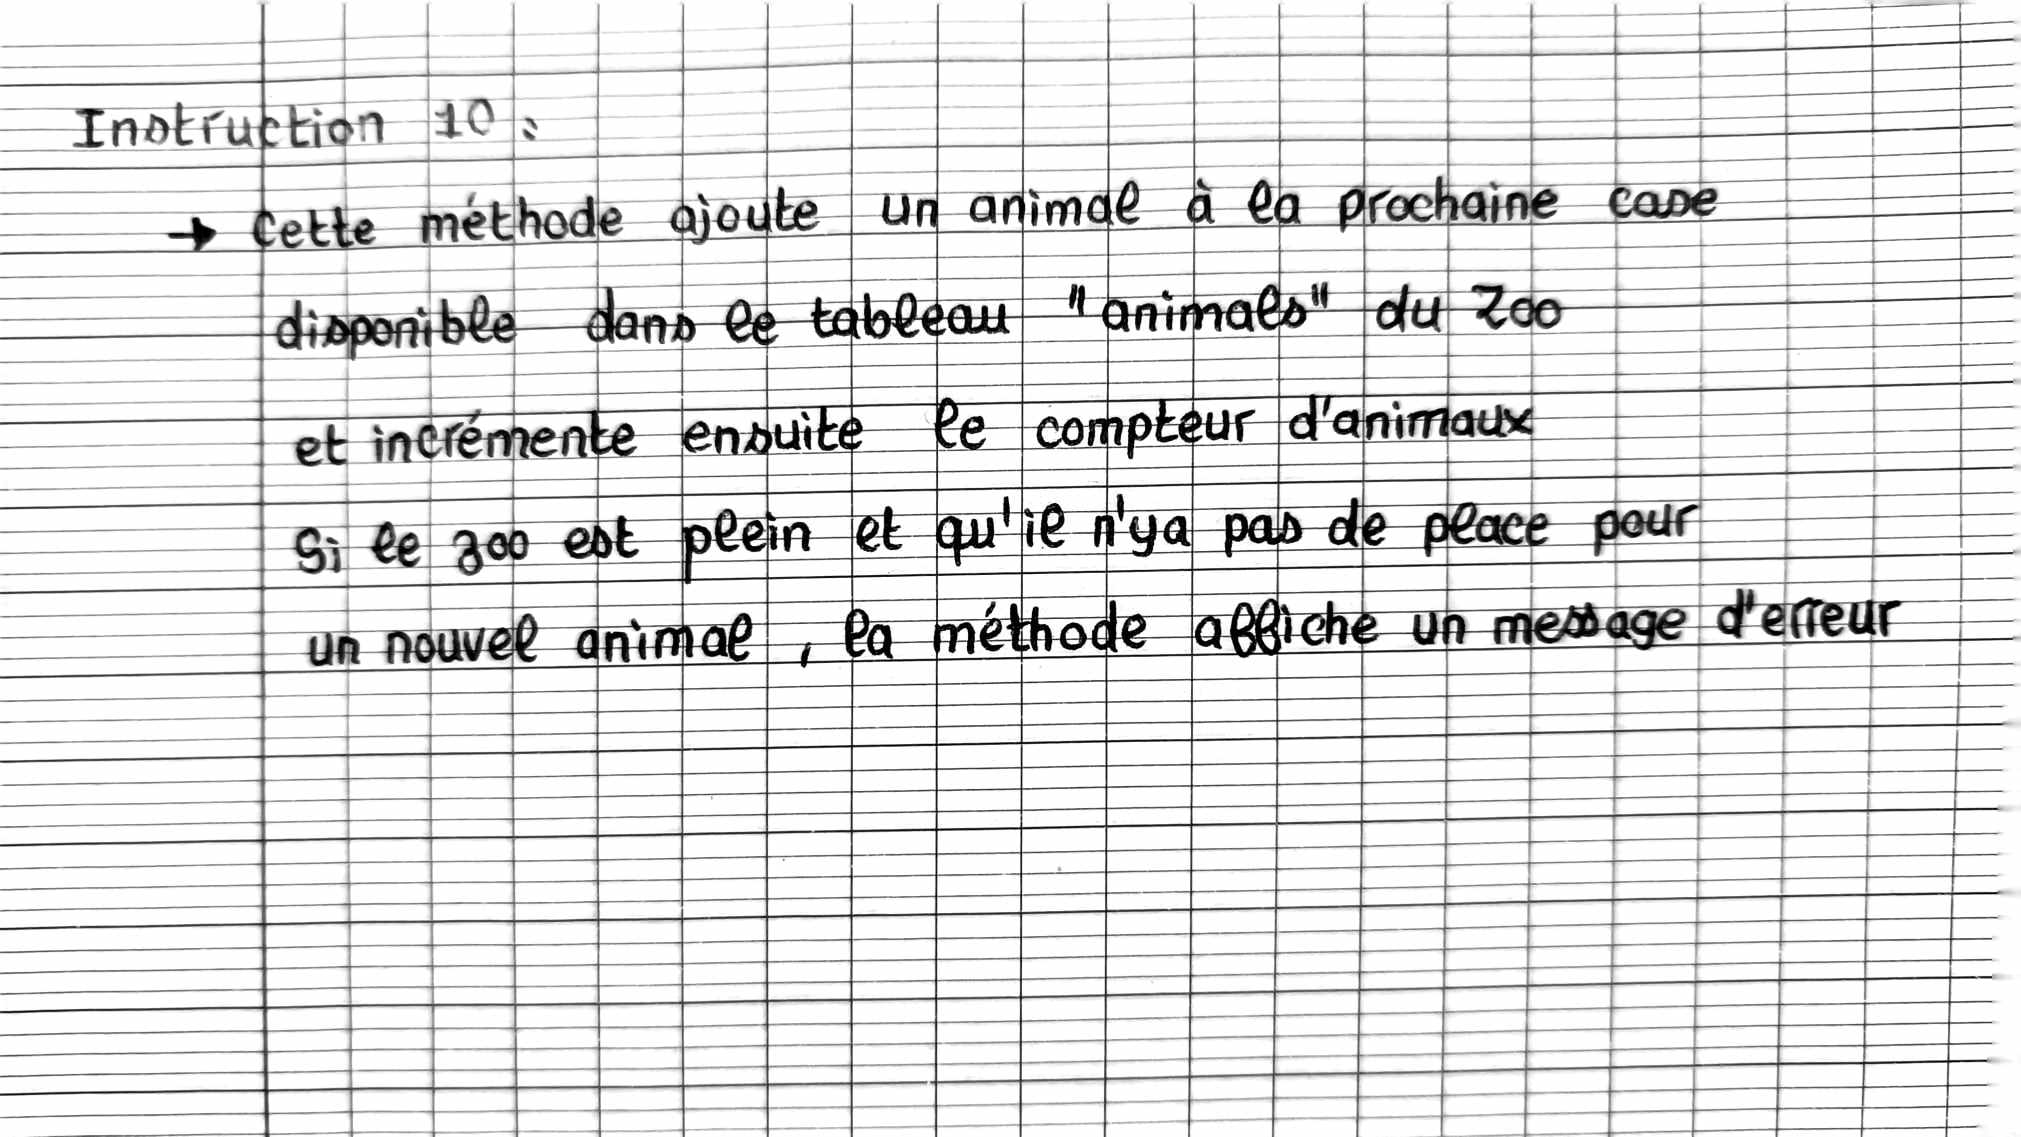 Instruction 10 :
→ Cette méthode ajoute un animal à la prochaine case
disponible dans le tableau "animals" du Zoo
et incrémente ensuite le compteur d'animaux
Si le zoo est plein et qu'il n'ya pas de place pour
un nouvel animal , la méthode affiche un message d'erreur